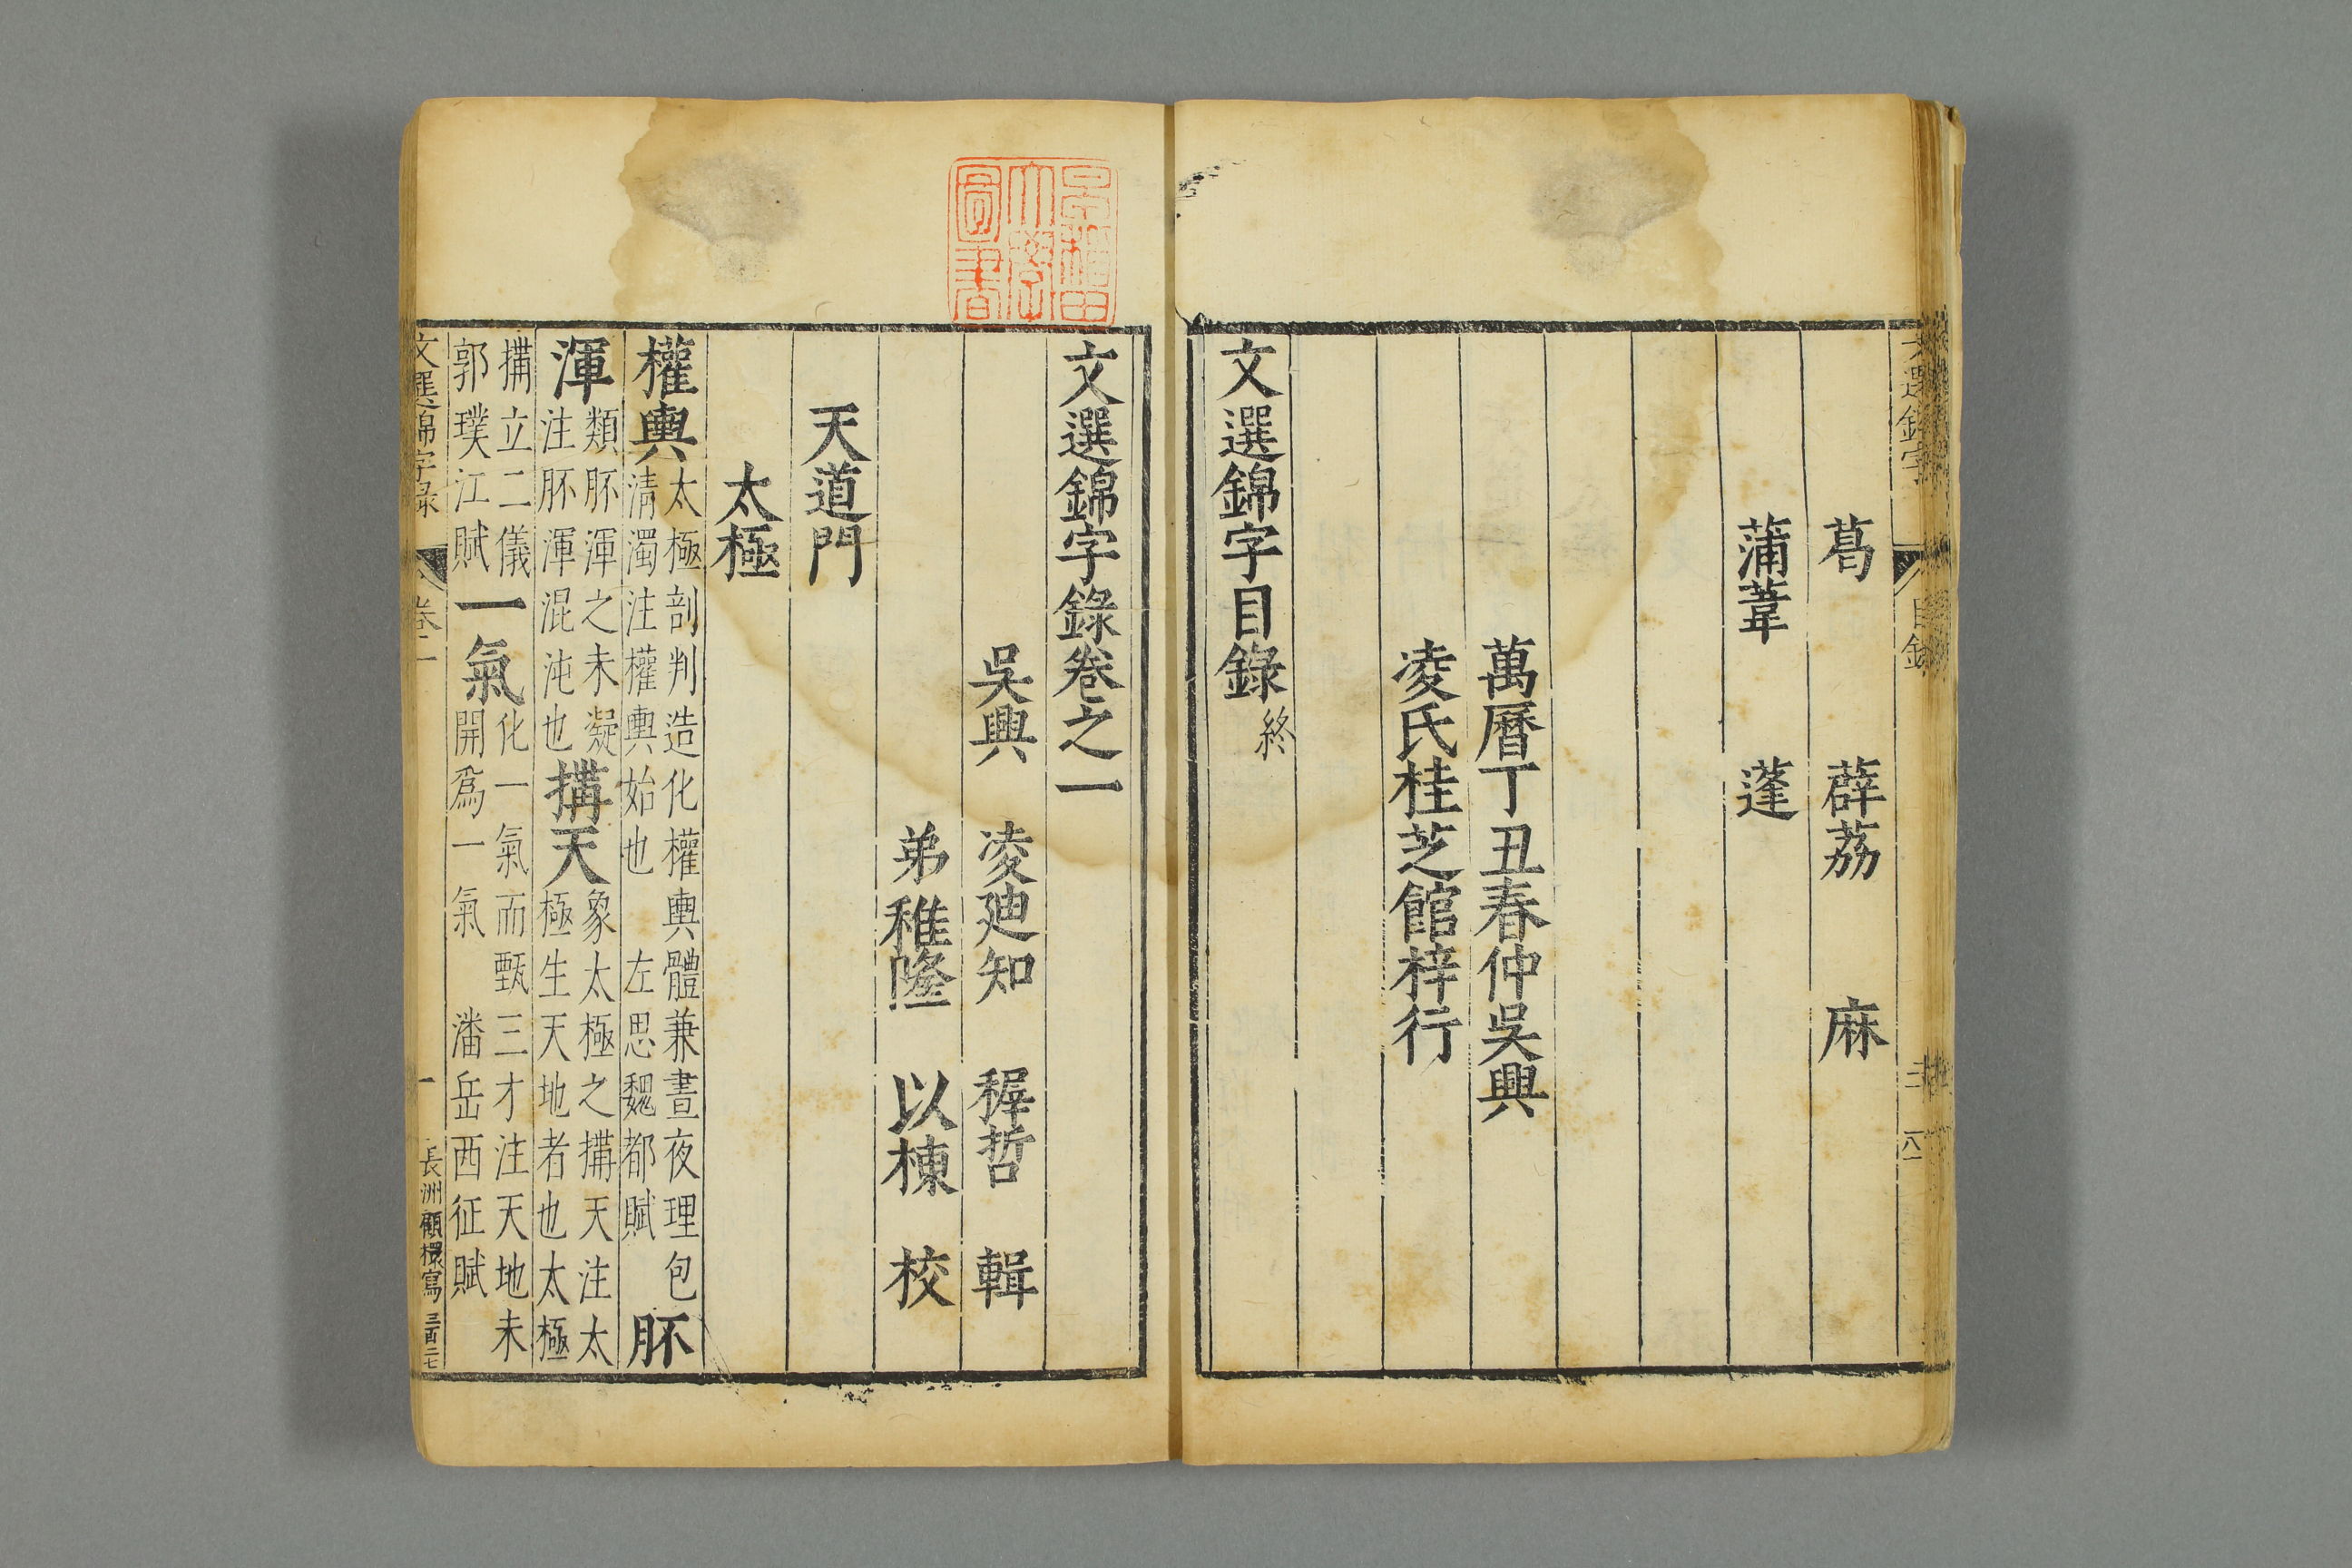 葛 薜荔 麻
蒲葦 蓬
萬曆丁丑春仲吳興
凌氏桂芝館梓行
文選錦字目錄終
早稲田大學圖書
文選錦字錄卷之一
吳興 凌廸知 稺哲 輯
弟稚隆 以棟 校
天道門
太極
權輿 太極剖判造化權輿體兼晝夜理包
清濁注權輿始也 左思魏都賦 胚
渾 類胚渾之未凝
注胚渾混沌也 搆天 象太極之搆天注太
極生天地者也太極
搆立二儀
郭璞江賦 一氣 化一氣而甄三才注天地未
開爲一氣 潘岳西征賦
文選錦字錄 卷一 一 長洲顧檈寫 三百二七